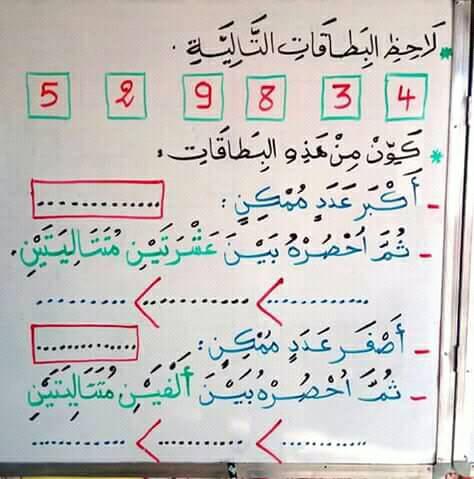 * لَاحِظِ البِطَاقَاتِ التَّالِيَّةِ .
4 3 8 9 2 5
* كَوِّنْ مِنْ هَذِهِ البِطَاقَاتِ :
- أَكْبَرَ عَدَدٍ مُمْكِنٍ : ..............
- ثُمَّ اُحْصُرْهُ بَيْنَ عَشْرَتَيْنِ مُتَتَالِيَتَيْنِ.
............ < ............ < ............
- أَصْغَرَ عَدَدٍ مُمْكِنٍ : ..............
- ثُمَّ اُحْصُرْهُ بَيْنَ أَلْفَيْنِ مُتَتَالِيَتَيْنِ
............ < ............ < ............